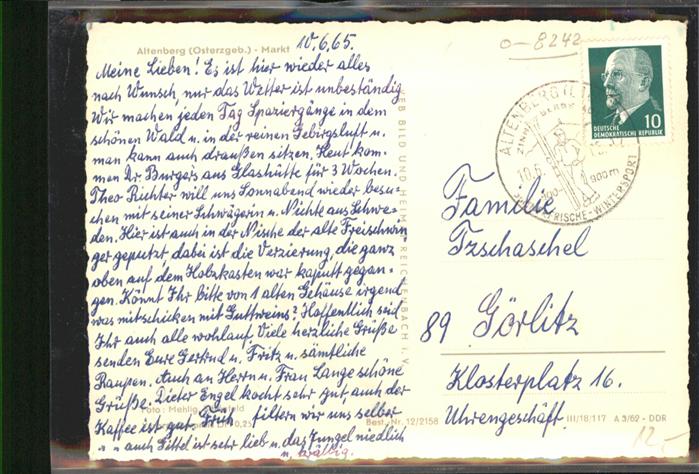 Altenberg (Osterzgeb.) - Markt
10.6.65.
Meine Lieben! Es ist hier wieder alles
nach Wunsch, nur das Wetter ist unbeständig
Wir machen jeden Tag Spaziergänge in dem
schönen Wald u. in der reinen Gebirgsluft u.
man kann auch draußen sitzen. Heut kom-
men Dr Burgers aus Glashütte für 3 Wochen.
Theo Richter will uns Sonnabend wieder besu-
chen mit seiner Schwägerin u. Nichte aus Schwe-
den. Hier ist auch in der Nische der alte Freischwin
ger geputzt, dabei ist die Verzierung, die ganz
oben auf dem Holzkasten war kaputt gegan-
gen. Könnt Ihr bitte von 1 alten Gehäuse irgend
was mitschicken mit Guttweins? Hoffentlich seid
Ihr auch alle wohlauf. Viele herzliche Grüße
senden Eure Gertrud u. Fritz u. sämtliche
Raupen. Auch an Herrn u. Frau Lange schöne
Grüße. Dieter Engel kocht sehr gut auch der
Kaffee ist gut. Früh filtern wir uns selber
" " auch Gittel ist sehr lieb u. das Jungel niedlich
u. drollig.
Foto: Mehlig
0,25
VEB BILD UND HEIMAT REICHENBACH I. V.
Best.-Nr. 12/2158
o-8242
10
DEUTSCHE
DEMOKRATISCHE REPUBLIK
ALTENBERG
900m
FRISCHE-WINTERSPORT
Familie
Tzschaschel
89 Görlitz
Klosterplatz 16.
Uhrengeschäft.
III/18/117 A 3/62 - DDR
12,-